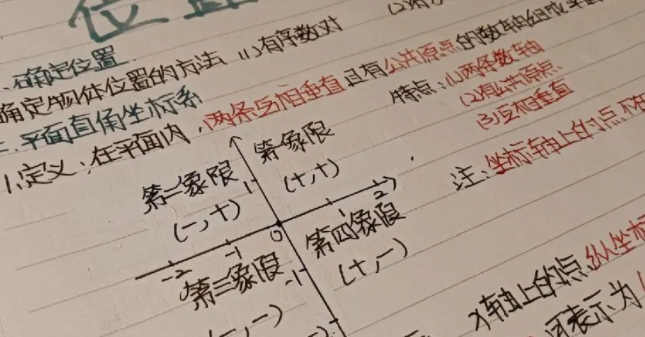 位置
一、确定位置
确定物体位置的方法 (1)有序数对
二、平面直角坐标系
1、定义：在平面内，两条互相垂直且有公共原点的数轴组成平面
特点：(1)两条数轴
(2)有公共原点
(3)互相垂直
注：坐标轴上的点不在
第二象限
(-,+)
第一象限
(+,+)
1
-2
-1
0
1
2
第三象限
(-,-)
-1
第四象限
(+,-)
x轴上的点纵坐标
可表示为